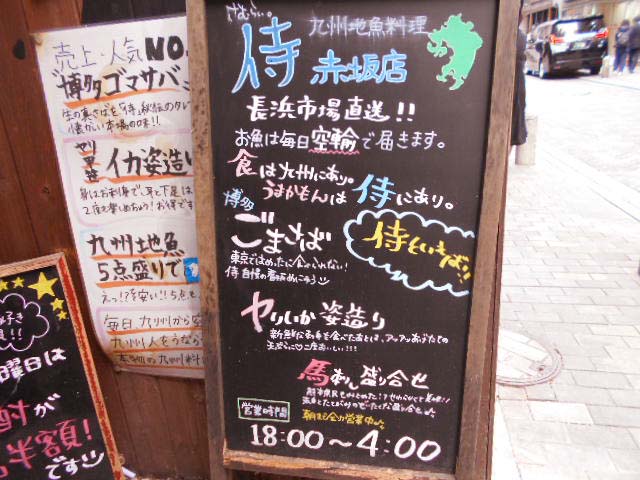 売上・人気NO.
博多ゴマサバ
ヤリイカ姿造り
九州地魚
5点盛りで
毎日、九州から空
九州人をうなら
本物の九州料理
さむらい。
九州地魚料理
侍 赤坂店
長浜市場直送!!
お魚は毎日空輸で届きます。
食は九州にあり。
うまかもんは侍にあり。
博多
ごまさば
侍といえば!!
東京ではめったに食べられない!
侍自慢の看板めにゅう
ヤリいか姿造り
新鮮なお身を食べたあとは、アツアツあげたての
天ぷらに 二度おいしい!!!
馬刺し盛り合せ
朝まで全力営業中♪
営業時間
18:00～4:00
好き
曜日は
酎が
半額!
です